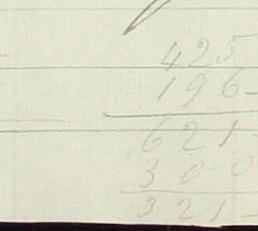 425
196-
621-
300
321-